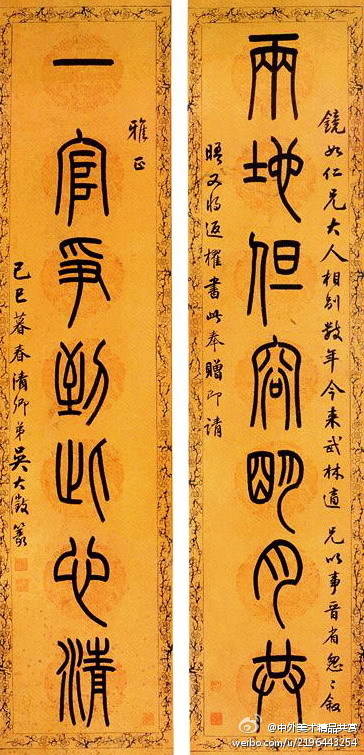 鏡如仁兄大人相別數年今來武林適 兄以事晉省怱〻敘
兩地但容明月共
晤又將返櫂書此奉贈即請
雅正
一官爭到此心清
己巳暮春清卿弟吳大澂篆
@中外美术精品共赏
weibo.com/u/2196443250